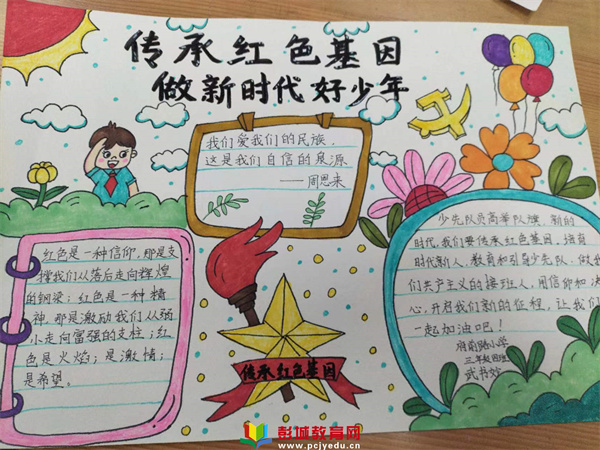 传承红色基因
做新时代好少年
我们爱我们的民族，
这是我们自信的泉源
——周恩来
红色是一种信仰，那是支
撑我们从落后走向辉煌
的钢梁；红色是一种精
神，那是激动我们从弱
小走向富强的支柱；红
色是火焰；是激情；
是希望。
少先队员高举队旗，新的
时代，我们要传承红色基因，培育
时代新人，教育和引导少先队，做我
们共产主义的接班人，用信仰和决
心，开启我们新的征程，让我们
一起加油吧！
府前路小学
三年级四班
武书妙
传承红色基因
彭城教育网
www.pcjyedu.cn